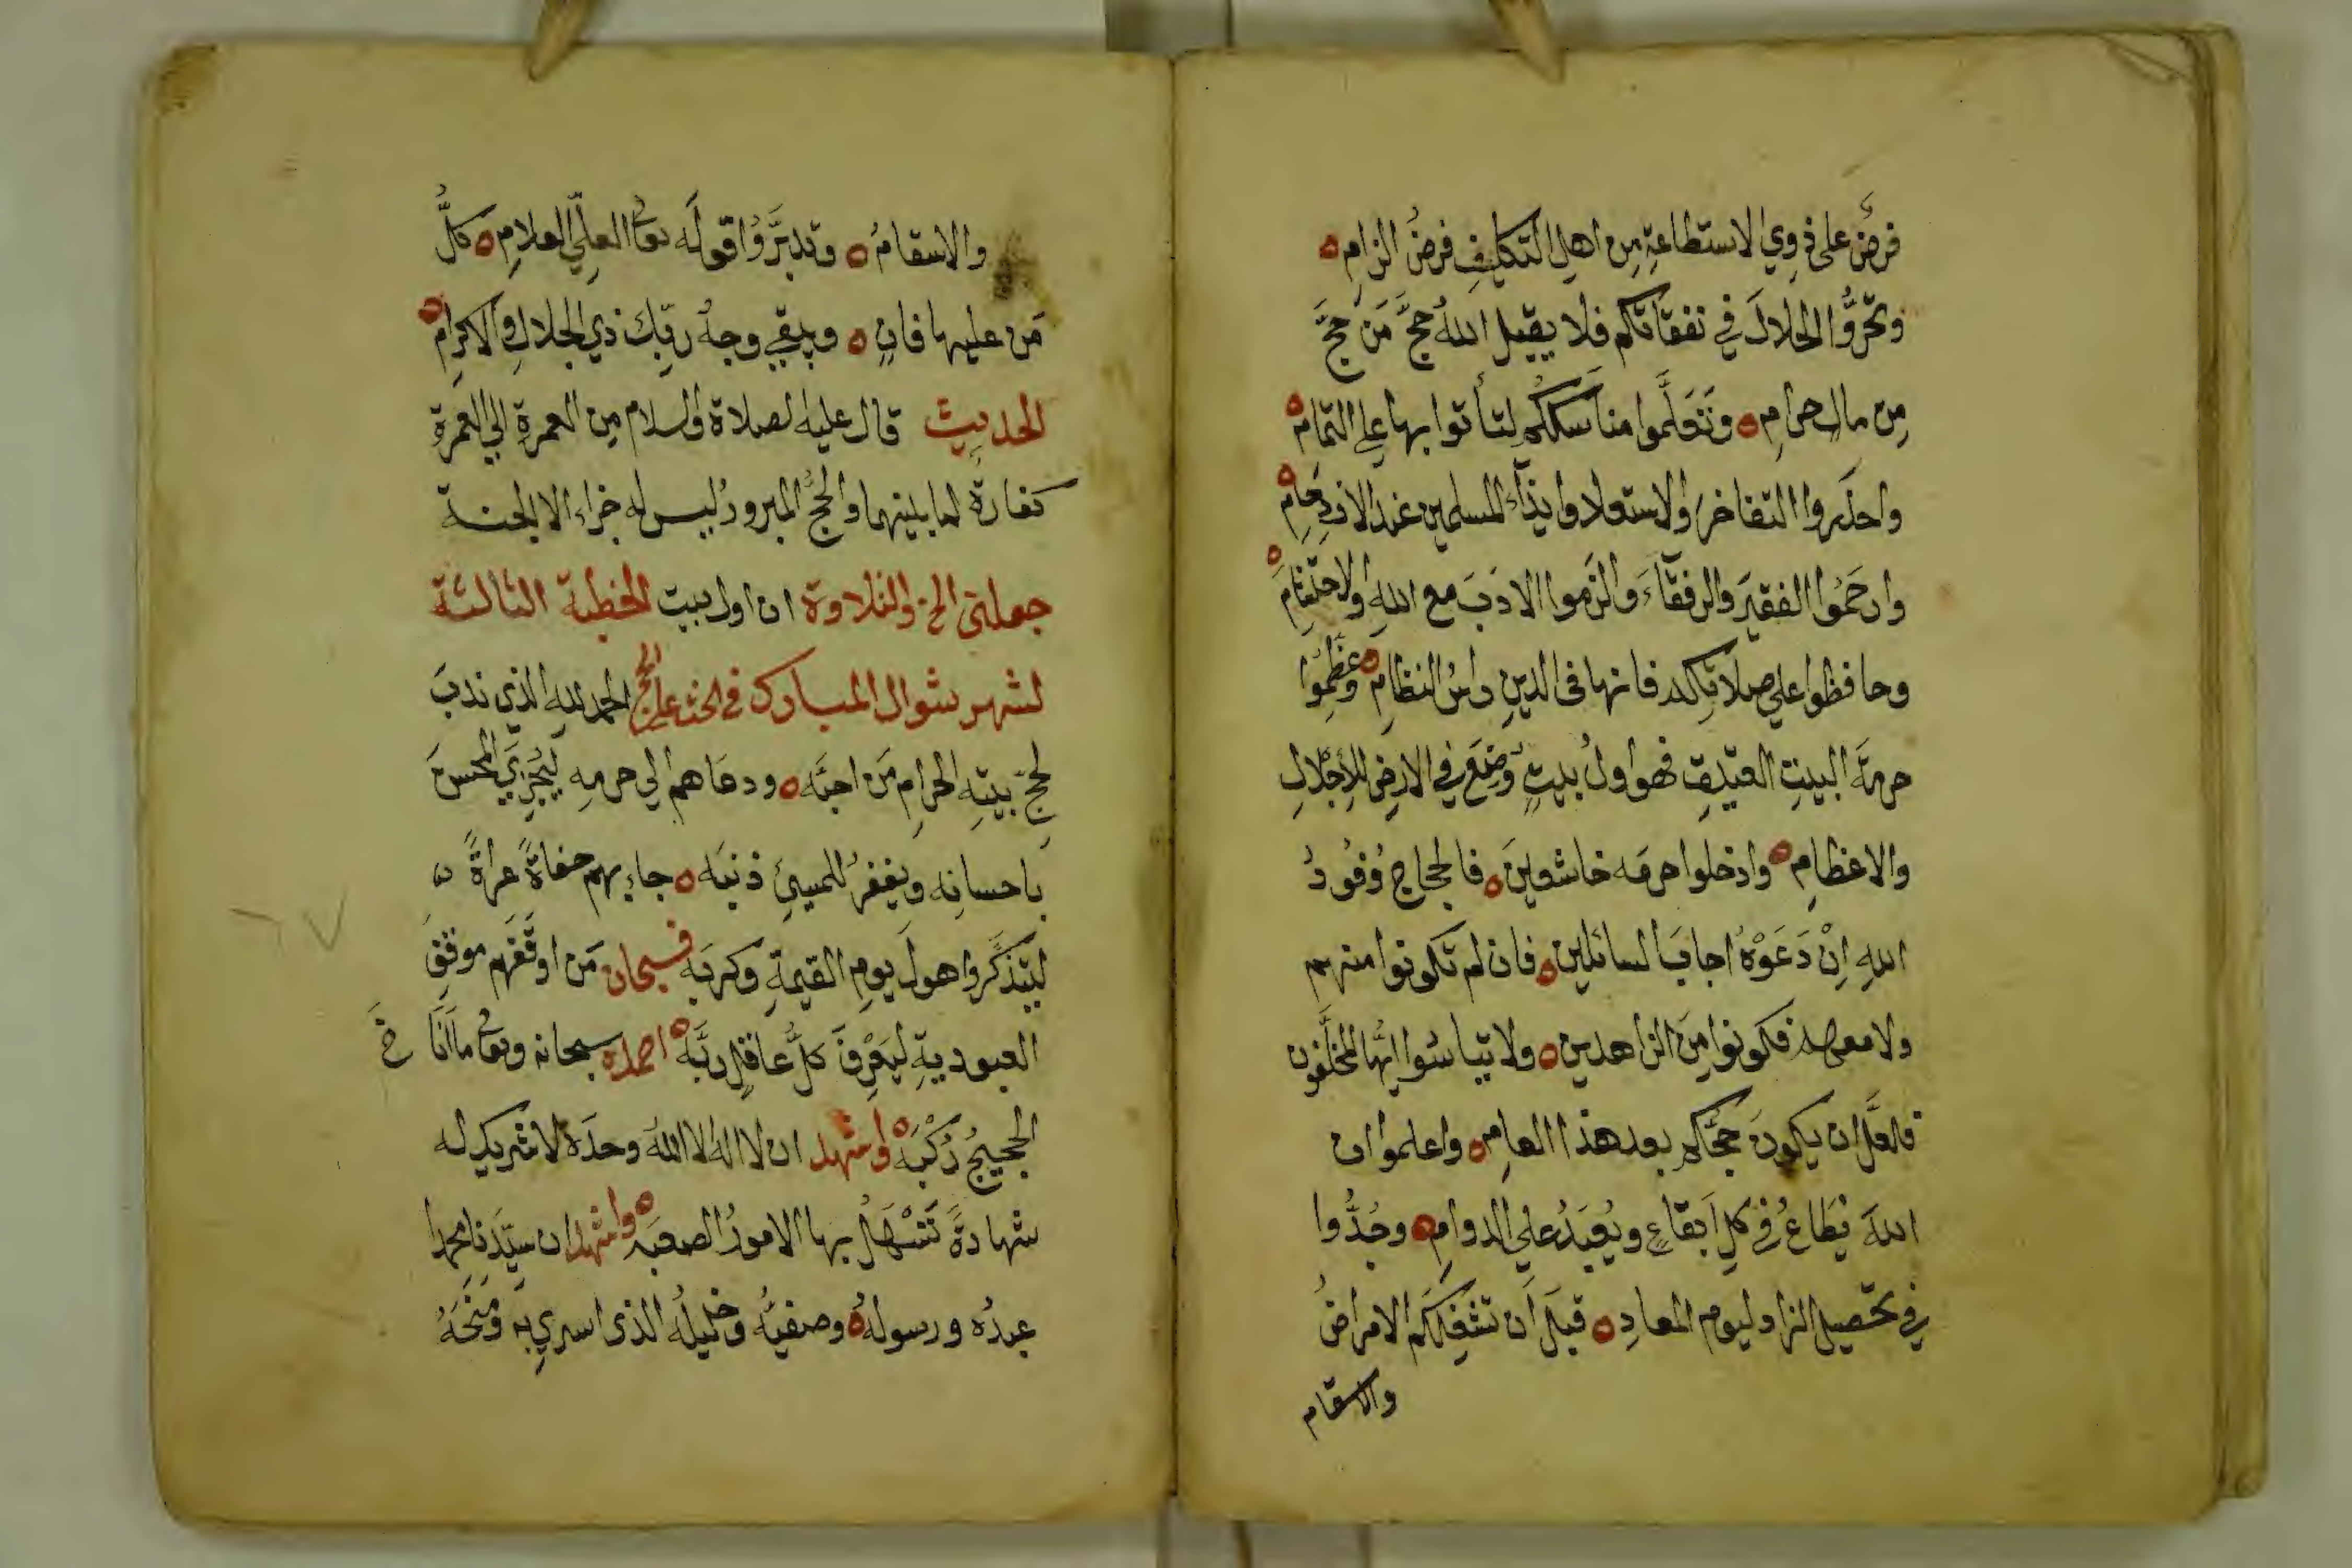 فرضٌ على ذوي الاستطاعةِ مِن اهل التكليفِ فرضُ الزامِ
وتحرَّوُا الحلالَ في نفقاتكم فلا يقبل اللهُ حجَّ مَن حجَّ
مِن مالٍ حرامٍ وتَعَلَّموا مناسككم لتأتوا بها على التمام
واحذروا التفاخرَ والاستعلا وايذآء المسلمين عند الازدحامِ
وارحَمُوا الفقيرَ والرفقآءَ والزَموا الادَبَ مع اللهِ والاحتشامَ
وحافظوا على صلاتكم فانها في الدينِ راسُ النظامِ وعَظِّمُوا
حرمةَ البيتِ العتيقِ فهو اولُ بيتٍ وُضِعَ في الارضِ للاِجْلالِ
والاعظامِ وادخلوا حرمَه خاشعينَ فالحجاج وُفُودُ
اللهِ اِنْ دَعَوْهُ اجابَ السائلين فان لم تكونوا منهم
ولا معهم فكونوا مِنَ الزاهدين ولا تيأسوا ايُّها المخلَّفون
فلعلَّ ان يكونَ حجُّكم بعد هذا العامِ واعلموا ان
اللهَ يُطَاعُ في كل ابقاعٍ ويُعبَدُ على الدوامِ وجُدُّوا
في تحصيل الزاد ليوم المعادِ قبلَ اَن تشغلَكم الامراضُ
والاسقام
والاسقامُ وتدبَّرُوا قولَه تعالى العليّ العلامِ كلُّ
مَن عليها فانٍ ويبقي وجهُ ربّك ذي الجلالِ والاكرامِ
الحديث قال عليه الصلاة والسلام مِن العمرةِ الي العمرةِ
كفارةٌ لما بينهما والحجُّ المبرورُ ليس له جزاء الا الجنة
جعلني الخ والتلاوة ان اول بيت الخطبة الثالثة
لشهر شوال المبارك في الحث على الحج الحمد لله الذي ندبَ
لحجّ بيتِه الحرامِ مَن احبَّه ودعاهم الي حرمِه ليُجزيَ المحسنَ
باحسانِه ويغفرُ للمسيئ ذنبَه جاء بهم حفاةً عراةً
ليتذكَّروا هولَ يومِ القيمةِ وكربَه فسبحان مَن اوقَفَهم موقفَ
العبوديةِ ليَعْرِفَ كلُّ عاقلٍ ربَّه احمده سبحانه وتعالى ما اَنَاخَ
الحجيجُ رُكْبَه واشهد ان لا اله الا اللهُ وحدَه لا شريك له
شهادةً تَسْهَلُ بها الامورُ الصعبَه واشهد ان سيّدَنا محمدا
عبدُه ورسولُه وصفيُّه وخليلُه الذي اسري به ومَنَحَهُ